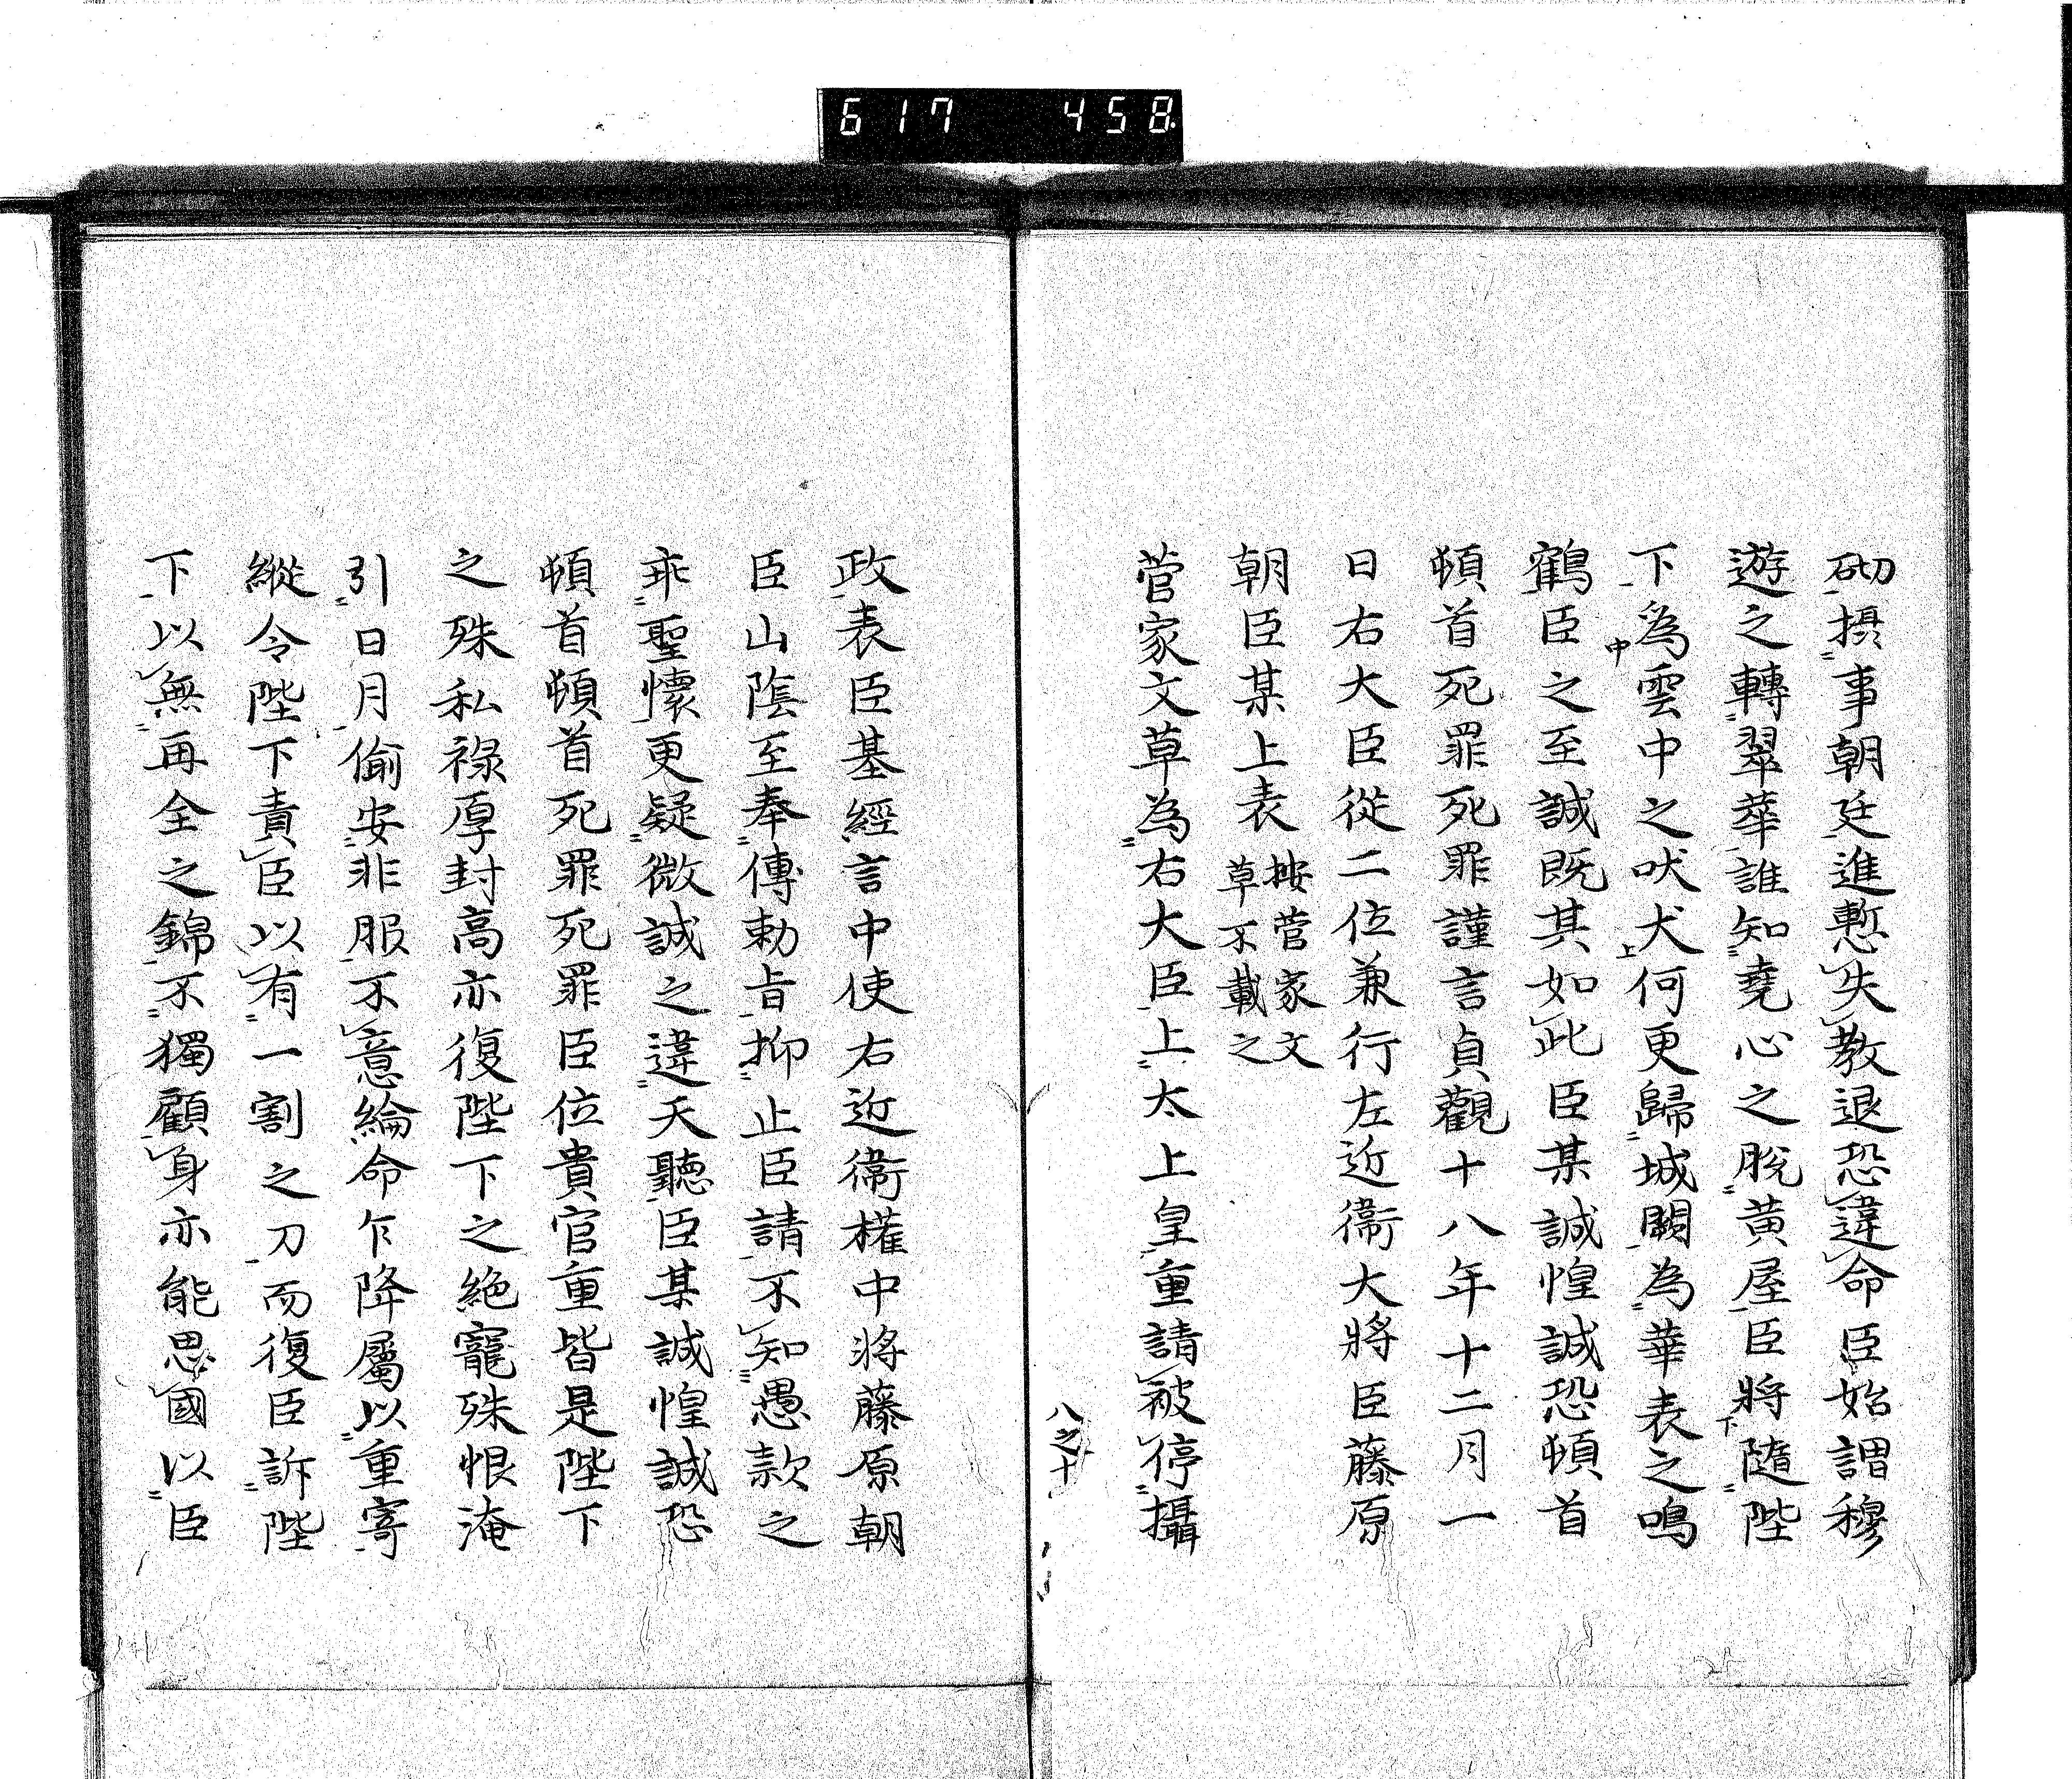 617 458
砌摂事朝廷進慙失教退恐違命臣始謂穆
遊之轉翠華誰知堯心之脱黄屋臣將随陛
下為雲中之吠犬何更歸城闕為華表之鳴
鶴臣之至誠既其如此臣某誠惶誠恐頓首
頓首死罪死罪謹言貞觀十八年十二月一
日右大臣従二位兼行左近衞大將臣藤原
朝臣某上表按菅家文
草不載之
菅家文草為右大臣上太上皇重請被停攝
八之十
政表臣基經言中使右近衞権中将藤原朝
臣山陰至奉傳勅旨抑止臣請不知愚款之
乖聖懐更疑微誠之違天聽臣某誠惶誠恐
頓首頓首死罪死罪臣位貴官重皆是陛下
之殊私禄厚封高亦復陛下之絶寵殊恨淹
引日月偷安非服不意綸命乍降属以重寄
縦令陛下責臣以有一割之刀而復臣訴陛
下以無再全之錦不獨顧身亦能思國以臣